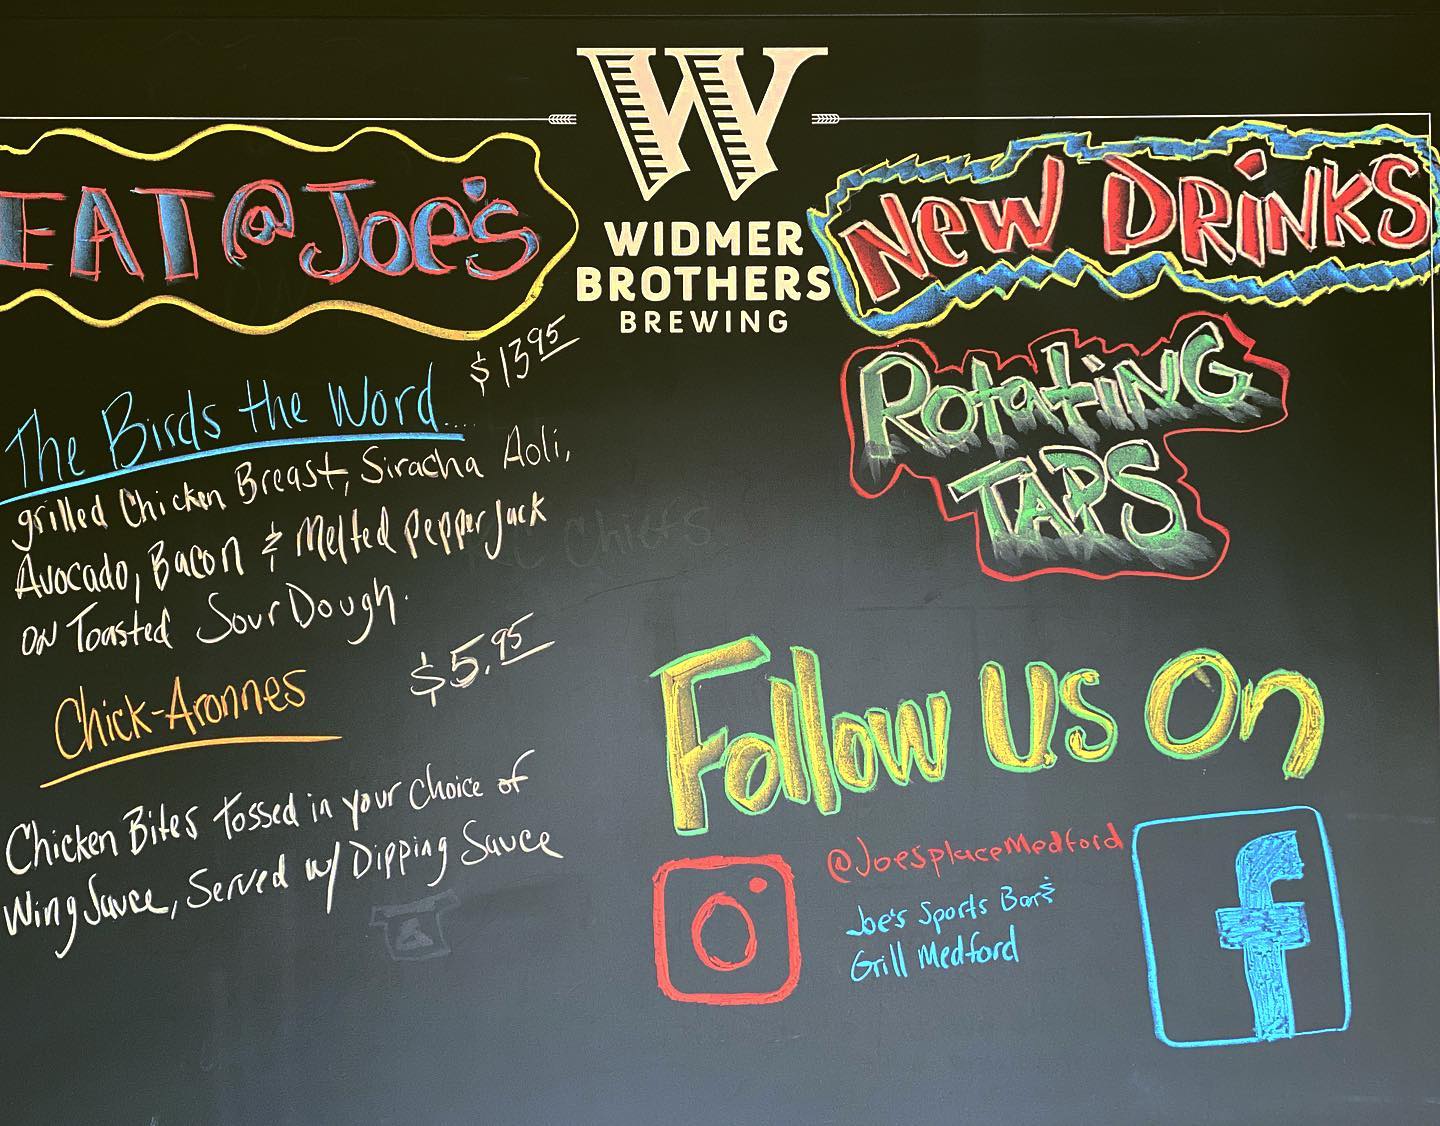 EAT @ Joe's
$13.95
The Birds the Word....
grilled Chicken Breast, Siracha Aoli,
Avocado, Bacon & Melted pepper Jack
on Toasted Sour Dough.
$5.95
Chick-Aronnes
Chicken Bites Tossed in your Choice of
Wing Sauce, Served w/ Dipping Sauce
W
WIDMER
BROTHERS
BREWING
New DRiNKS
RotatiNG
TAPS
Chiefs
Follow Us On
@JoesplaceMedford
Joe's Sports Bar &
Grill Medford
f